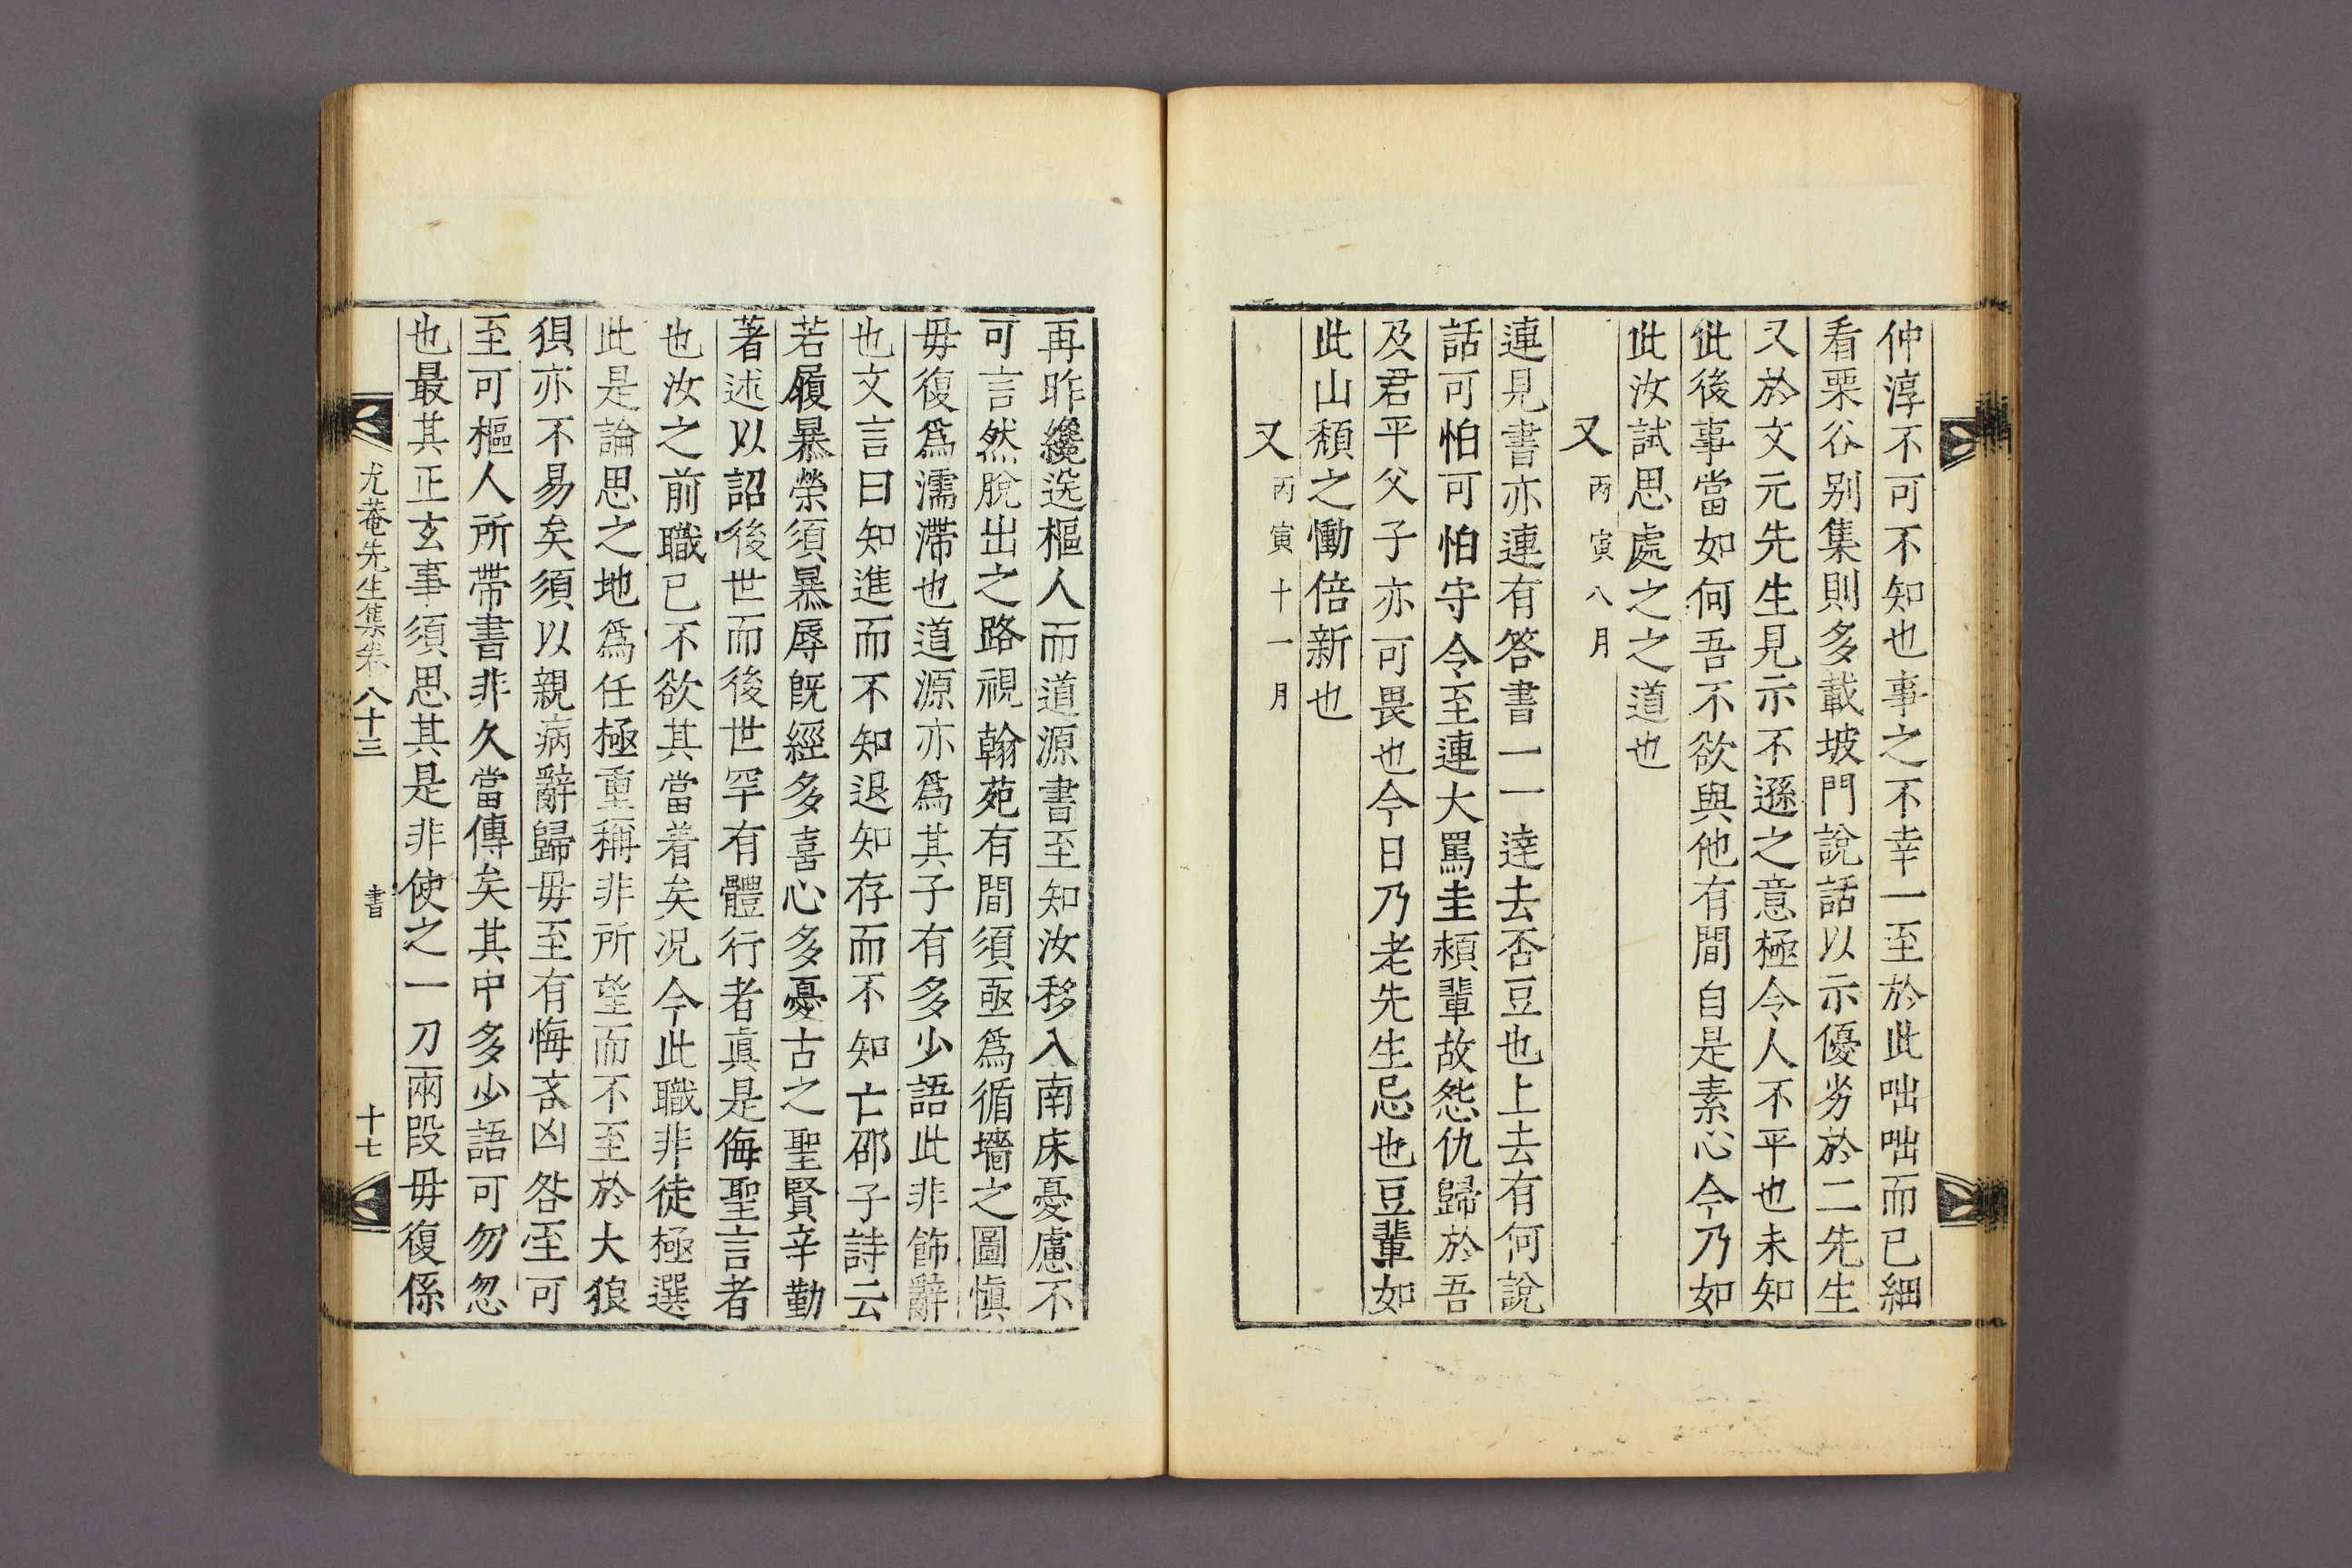 仲淳不可不知也事之不幸一至於此咄咄而已細
看栗谷別集則多載坡門說話以示優劣於二先生
又於文元先生見示不遜之意極令人不平也未知
此後事當如何吾不欲與他有間自是素心今乃如
此汝試思處之之道也
又丙寅八月
連見書亦連有答書一一達去否豆也上去有何說
話可怕可怕守令至連大罵圭頯輩故怨仇歸於吾
及君平父子亦可畏也今日乃老先生忌也豆輩如
此山頹之慟倍新也
又丙寅十一月
再昨纔送樞人而道源書至知汝移入南床憂慮不
可言然脫出之路視翰苑有間須亟爲循墻之圖愼
毋復爲濡滯也道源亦爲其子有多少語此非飾辭
也文言曰知進而不知退知存而不知亡邵子詩云
若履暴榮須暴辱旣經多喜心多憂古之聖賢辛勤
著述以詔後世而後世罕有體行者眞是侮聖言者
也汝之前職已不欲其當着矣况今此職非徒極選
此是論思之地爲任極重稱非所望而不至於大狼
狽亦不易矣須以親病辭歸毋至有悔吝凶咎至可
至可樞人所帶書非久當傳矣其中多少語可勿忽
也最其正玄事須思其是非使之一刀兩段毋復係
尤菴先生集卷八十三 書 十七